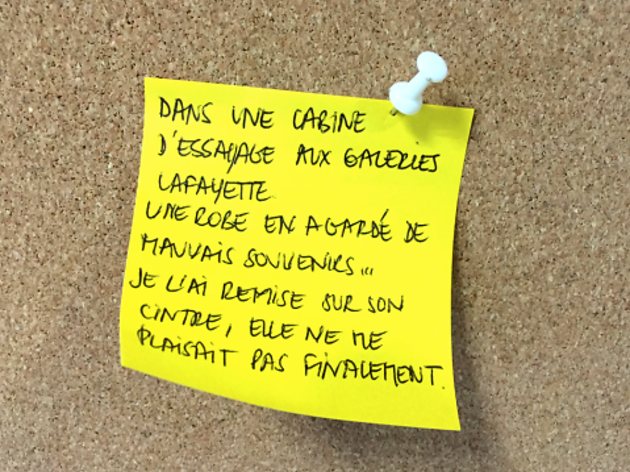 DANS UNE CABINE
D'ESSAYAGE AUX GALERIES
LAFAYETTE.
UNE ROBE EN A GARDÉ DE
MAUVAIS SOUVENIRS...
JE L'AI REMISE SUR SON
CINTRE, ELLE NE ME
PLAISAIT PAS FINALEMENT.